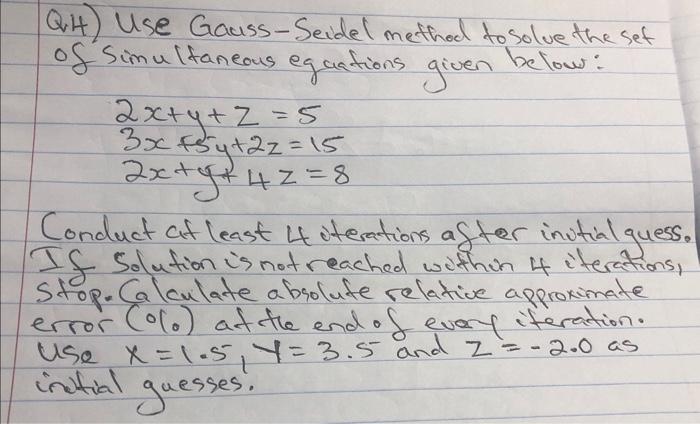 Q4) Use Gauss-Seidel method to solve the set
of simultaneous equations given below:
2x+y+z=5
3x+5y+2z=15
2x+y+4z=8
Conduct at least 4 iterations after initial guess.
If solution is not reached within 4 iterations,
stop. Calculate absolute relative approximate
error (%) at the end of every iteration.
Use x=1.5, Y=3.5 and Z=-2.0 as
initial guesses.